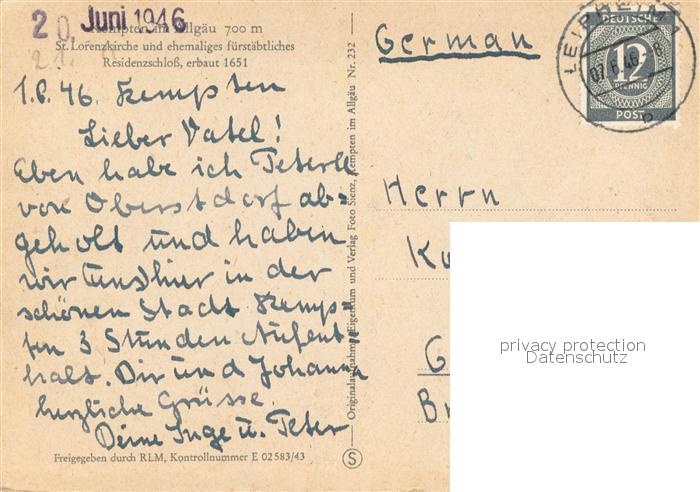 20. Juni 1946
21.
Kempten im Allgäu 700 m
St. Lorenzkirche und ehemaliges fürstäbtliches
Residenzschloß, erbaut 1651
1.6.46. Kempten
Lieber Vatel!
Eben habe ich Peterle
von Oberstdorf ab=
geholt und haben
wir (uns) hier in der
schönen Stadt Kemp=
ten 3 Stunden Aufent=
halt. Dir und Johanna
herzliche Grüsse.
Deine Inge u. Peter
Freigegeben durch RLM, Kontrollnummer E 02583/43
Originalaufnahme, Eigentum und Verlag Foto Sienz, Kempten im Allgäu Nr. 232
S
German
LEIPHEIM
07.6.46.-8
b
DEUTSCHE
12
PFENNIG
POST
Herrn
Ku
G
Br
privacy protection
Datenschutz